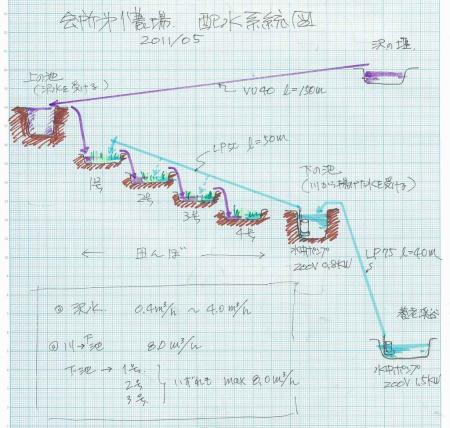 会所 農場 配水系統図
2011/05
上の池
(沢水を受ける)
沢の堰
VU40 l=150m
LP50 l=50m
下の池
(川から揚げた水を受ける)
1号
2号
3号
4号
← 田んぼ →
水中ポンプ
200V 0.8KW
LP75 l=40m
養老渓谷
水中ポンプ
200V 1.5KW
沢水 0.4m³/h ~ 4.0m³/h
川→下池 8.0m³/h
下池 → 1号
2号
3号
いずれも max 8.0m³/h